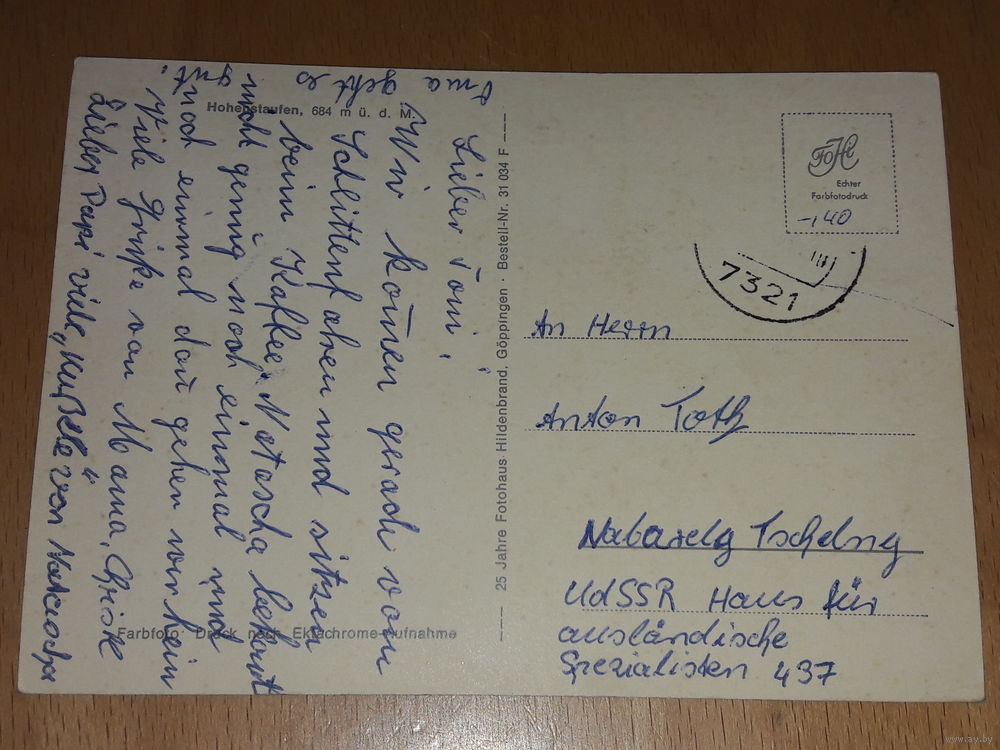 Hohenstaufen, 684 m ü. d. M.
Lieber Toni!
Wir komen gerade vom
Schlittenfahren und sitzen
beim Kaffee. Natascha bekommt
nicht genug noch einmal und
noch einmal dan gehen wir heim
Viele Grüße von Mama, Christe
Lieber Papi viele „Kußele" von Natascha
Oma geht es
gut.
Farbfoto: Druck nach Ektachrome-Aufnahme
25 Jahre Fotohaus Hildenbrand, Göppingen · Bestell-Nr. 31 034 F
FOH
Echter
Farbfotodruck
-,40
7321
An Herrn
Anton Toth
Nabarelg Tschelny
UdSSR Haus für
ausländische
Spezialisten 437
www.ay.by